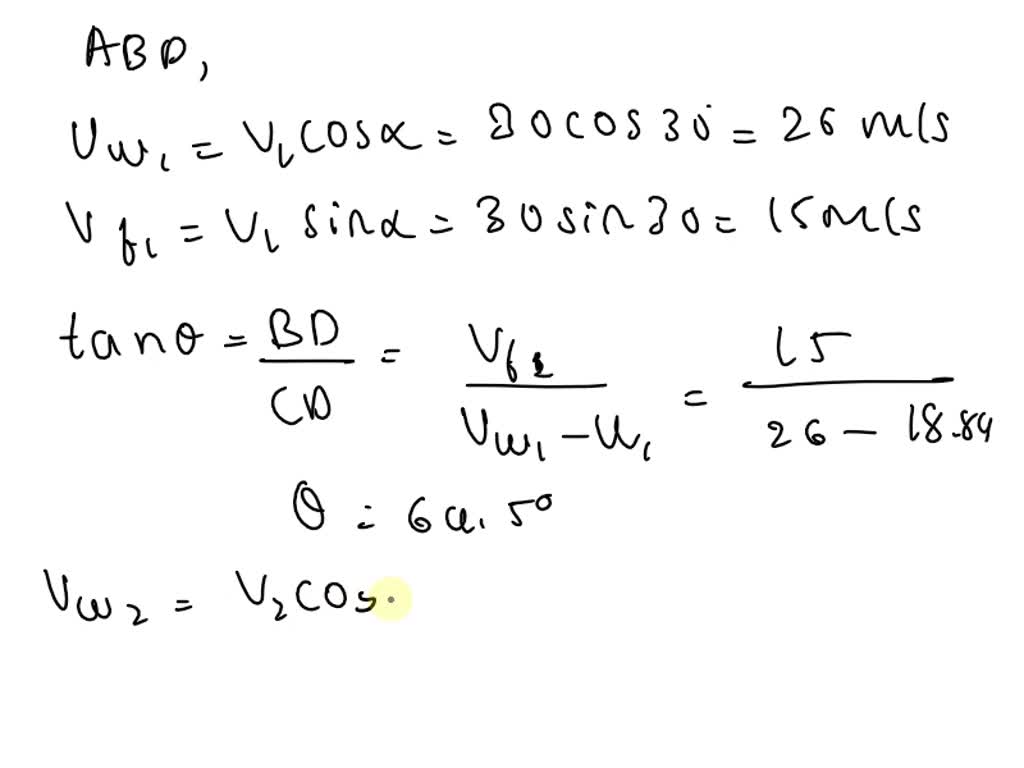 ABD,
Vw1 = V1 cosα = 30 cos 30° = 26 m/s
Vf1 = V1 sinα = 30 sin 30 = 15 m/s
tanθ = BD/CD = Vf1/(Vw1 - U1) = 15/(26 - 18.84)
θ = 64.5°
Vw2 = V2 cos